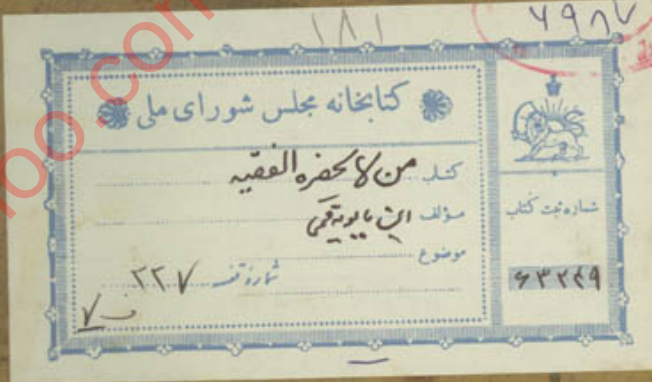 ۱۸۱
۶۹۸۷
کتابخانه مجلس شورای ملی
کتاب من لا یحضره الفقیه
مؤلف ابن بابویه قمی
موضوع
شماره قفسه ۲۲۷
۷
شماره ثبت کتاب
۶۳۲۴۹
oo.com